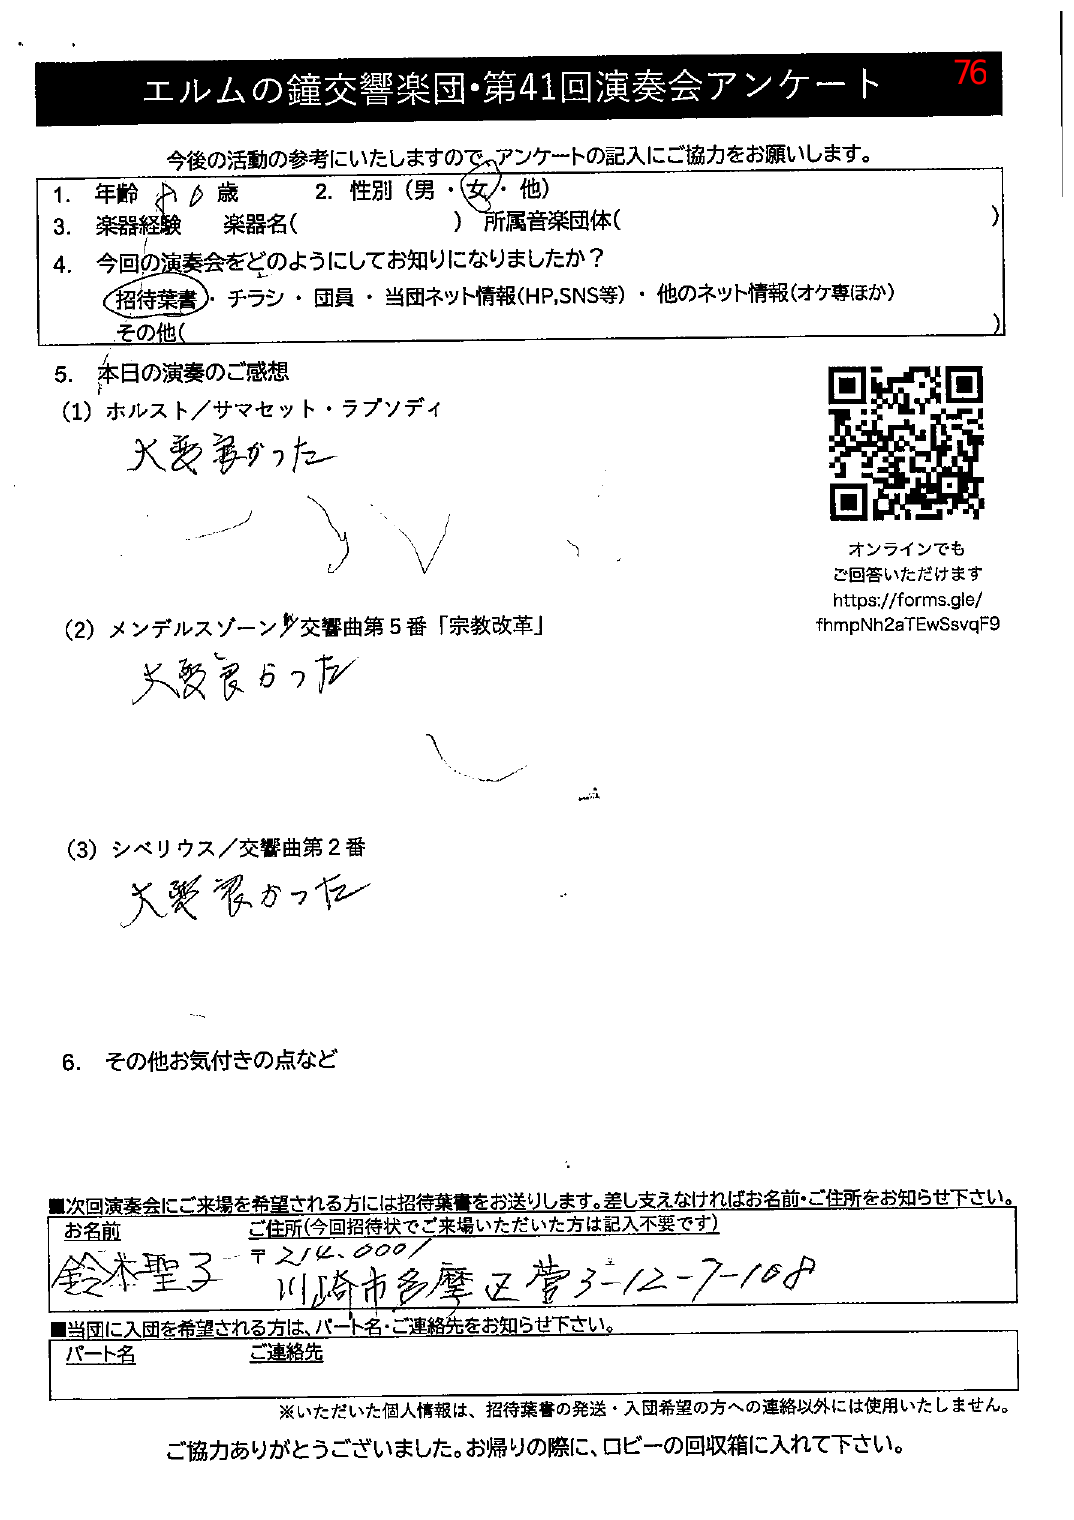 エルムの鐘交響楽団・第41回演奏会アンケート
76
今後の活動の参考にいたしますので、アンケートの記入にご協力をお願いします。
1. 年齢 80 歳 2. 性別（男・女・他）
3. 楽器経験 楽器名( ) 所属音楽団体( )
4. 今回の演奏会をどのようにしてお知りになりましたか？
招待葉書・チラシ・団員・当団ネット情報(HP,SNS等)・他のネット情報(オケ専ほか)
その他( )
5. 本日の演奏のご感想
(1) ホルスト／サマセット・ラプソディ
大変良かった
オンラインでも
ご回答いただけます
https://forms.gle/
fhmpNh2aTEwSsvqF9
(2) メンデルスゾーン／交響曲第５番「宗教改革」
大変良かった
(3) シベリウス／交響曲第２番
大変良かった
6. その他お気付きの点など
■次回演奏会にご来場を希望される方には招待葉書をお送りします。差し支えなければお名前・ご住所をお知らせ下さい。
お名前 ご住所(今回招待状でご来場いただいた方は記入不要です)
鈴木聖子 〒214-0001
川崎市多摩区菅3-12-7-108
■当団に入団を希望される方は、パート名・ご連絡先をお知らせ下さい。
パート名 ご連絡先
※いただいた個人情報は、招待葉書の発送・入団希望の方への連絡以外には使用いたしません。
ご協力ありがとうございました。お帰りの際に、ロビーの回収箱に入れて下さい。